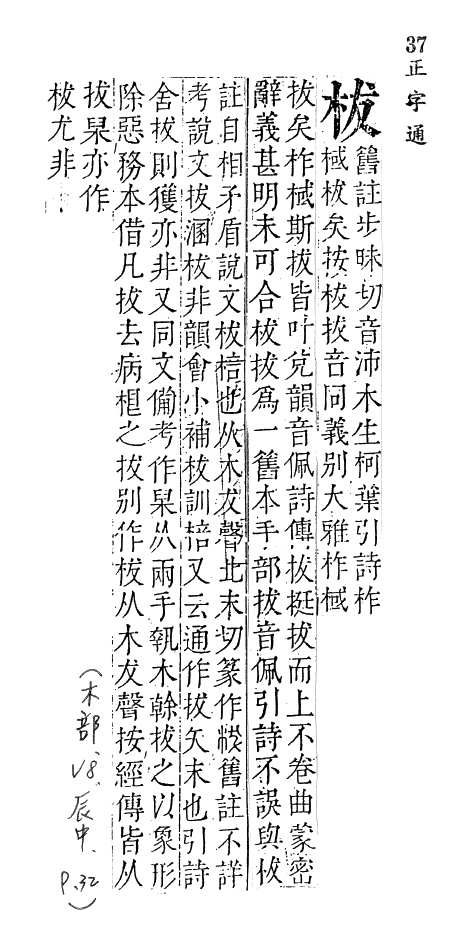 37正字通
柭
舊註步昧切音沛木生柯葉引詩柞
棫柭矣按柭拔音同義别大雅柞棫
拔矣柞棫斯拔皆叶兌韻音佩詩傳拔挺拔而上不卷曲蒙密
辭義甚明未可合柭拔爲一舊本手部拔音佩引詩不誤與柭
註自相矛盾說文柭棓也从木犮聲北末切篆作柭舊註不詳
考說文拔溷柭非韻會小補柭訓棓又云通作拔矢末也引詩
舍拔則獲亦非又同文備考作杲从兩手執木榦拔之以象形
除惡務本借凡拔去病根之拔别作柭从木犮聲按經傳皆从
拔杲亦作
柭尤非
(木部、V8、辰中、P.32)